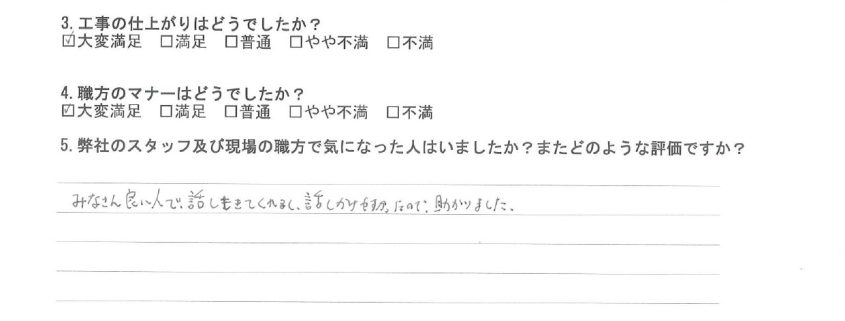 3. 工事の仕上がりはどうでしたか？
☑大変満足 □満足 □普通 □やや不満 □不満
4. 職方のマナーはどうでしたか？
☑大変満足 □満足 □普通 □やや不満 □不満
5. 弊社のスタッフ及び現場の職方で気になった人はいましたか？またどのような評価ですか？
みなさん良い人で、話しもきてくれるし、話しかけやすかったので、助かりました。